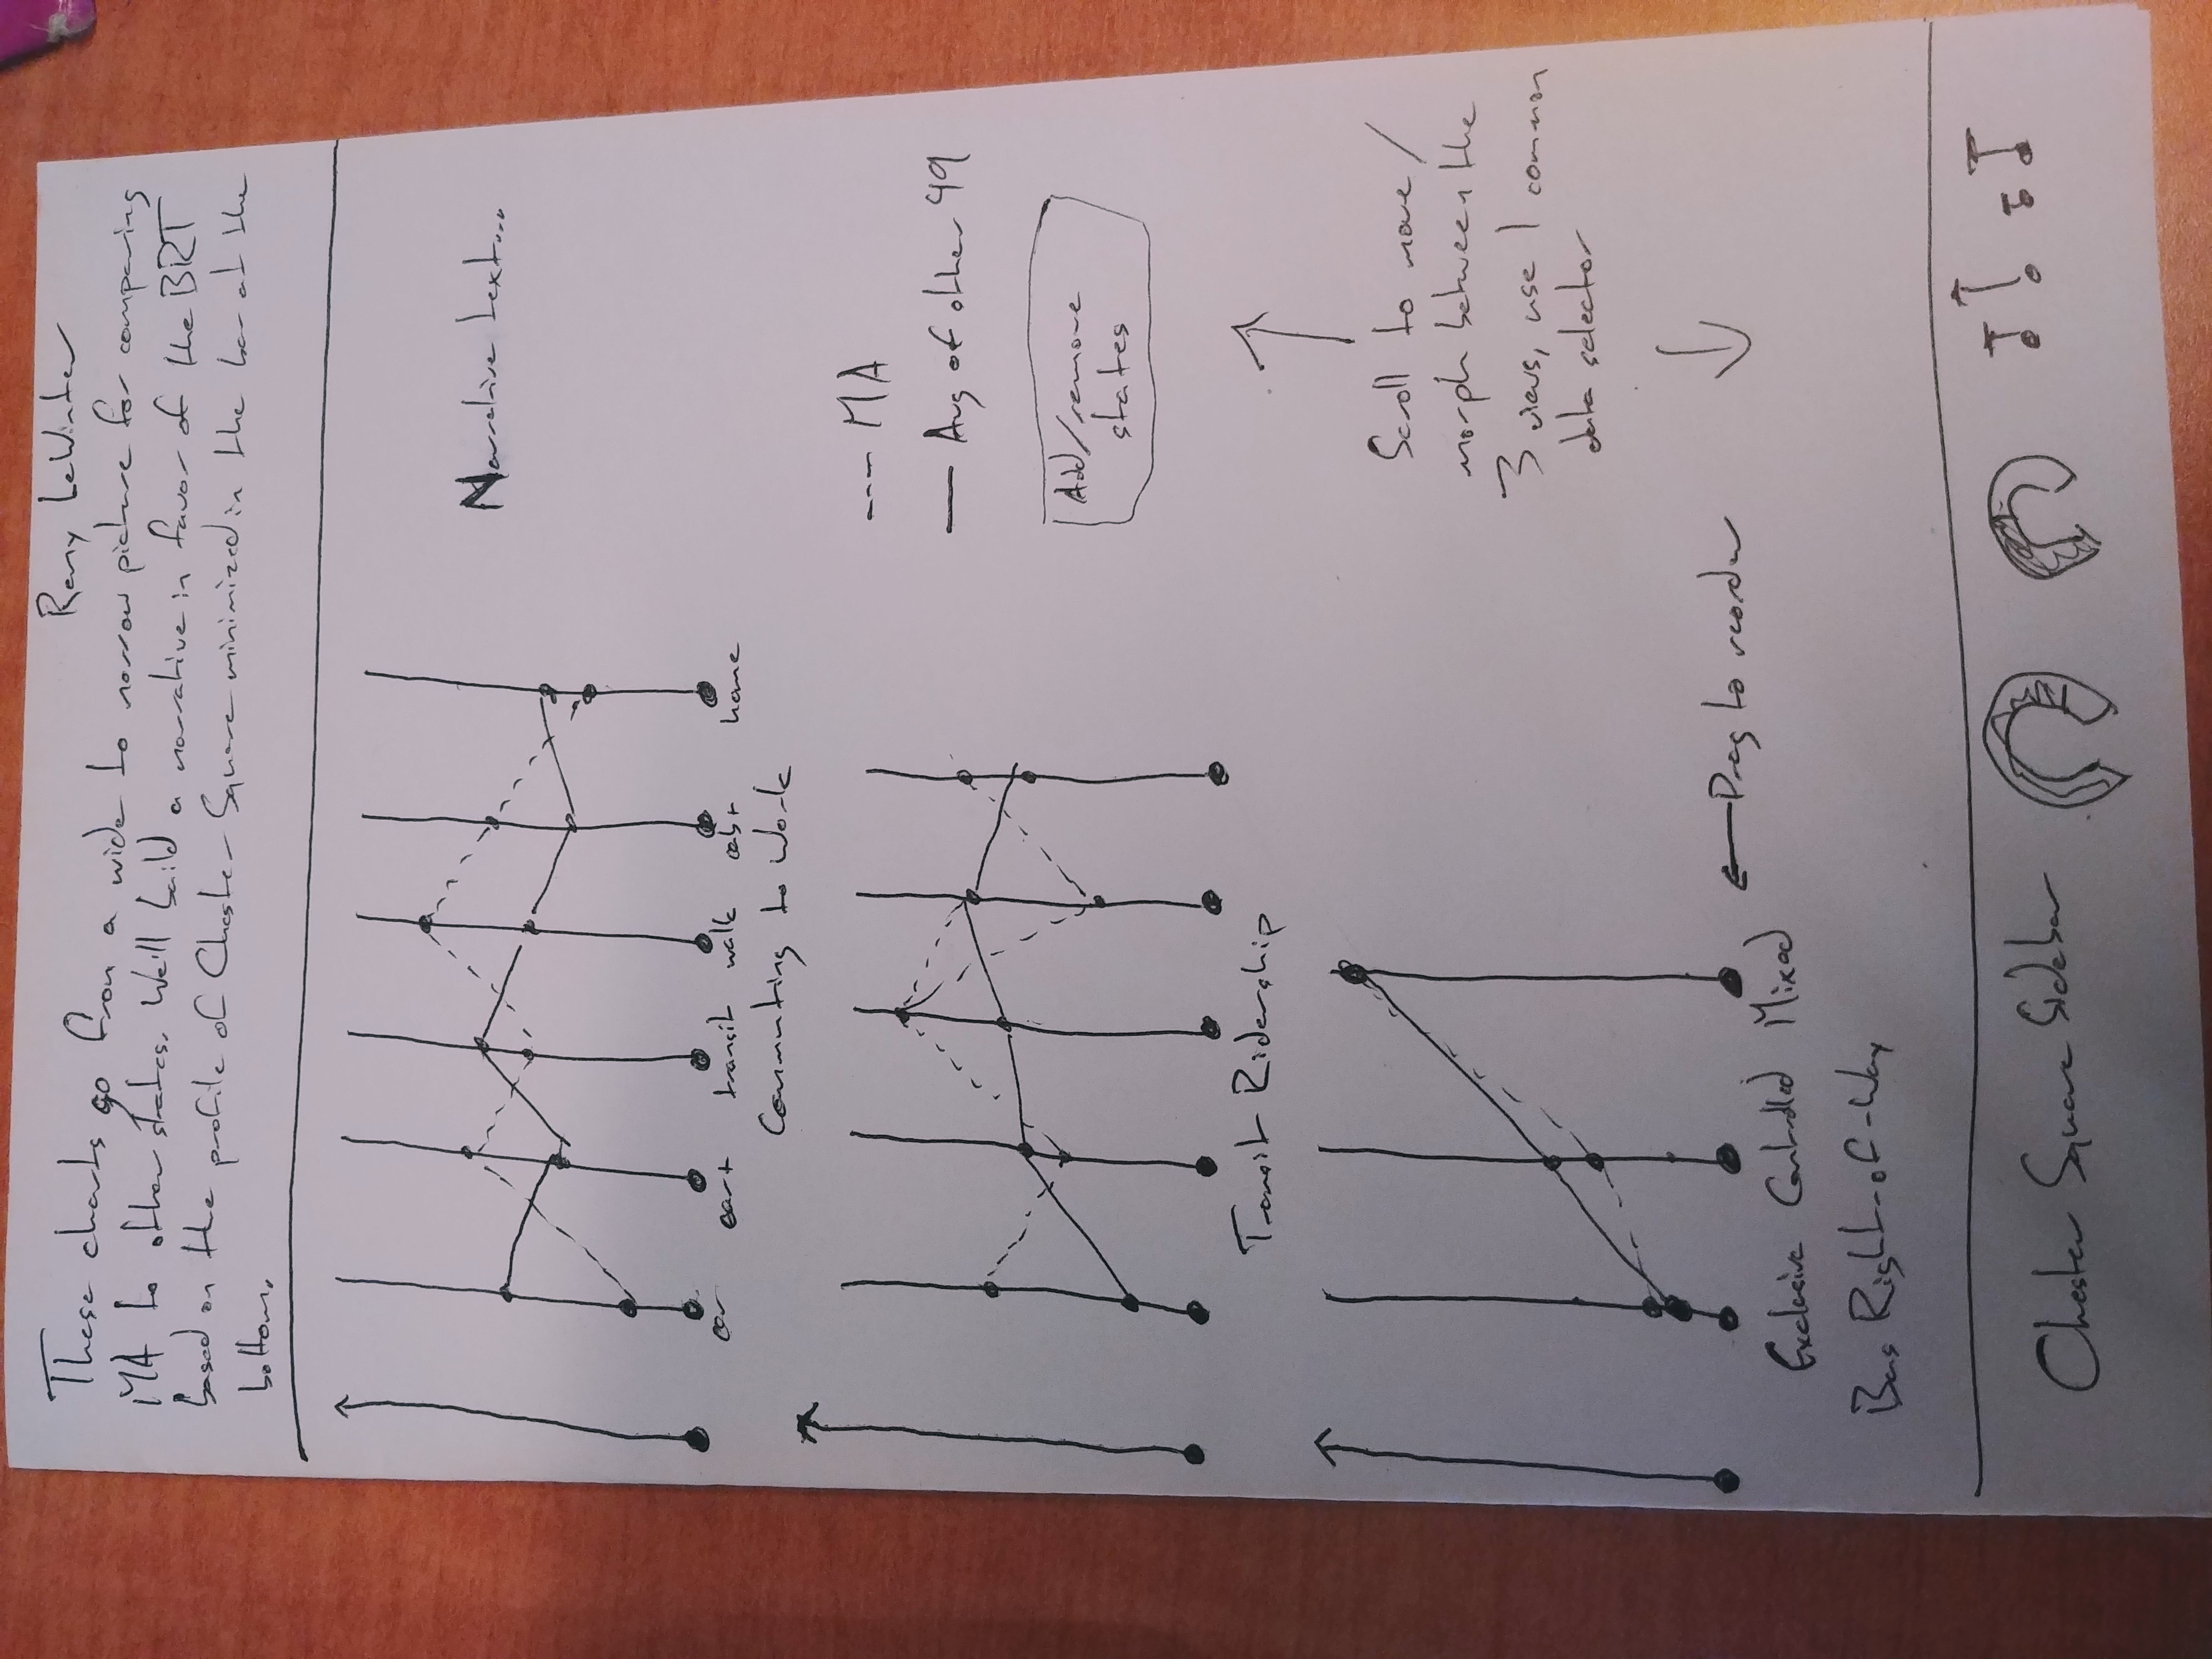 Remy LeWinter
These charts go from a wide to narrow picture for comparing
MA to other states. We'll build a narrative in favor of the BRT
based on the profile of Chester Square minimized in the bar at the
bottom.
Narrative text...
car car+ transit walk home
Commuting to Work
--- MA
— Avg of other 49
Add/remove
states
Transit Ridership
Scroll to move/
morph between the
3 views, use 1 common
data selector
← Drag to reorder
Exclusive Controlled Mixed
Bus Right-of-Way
Chester Square Sidebar